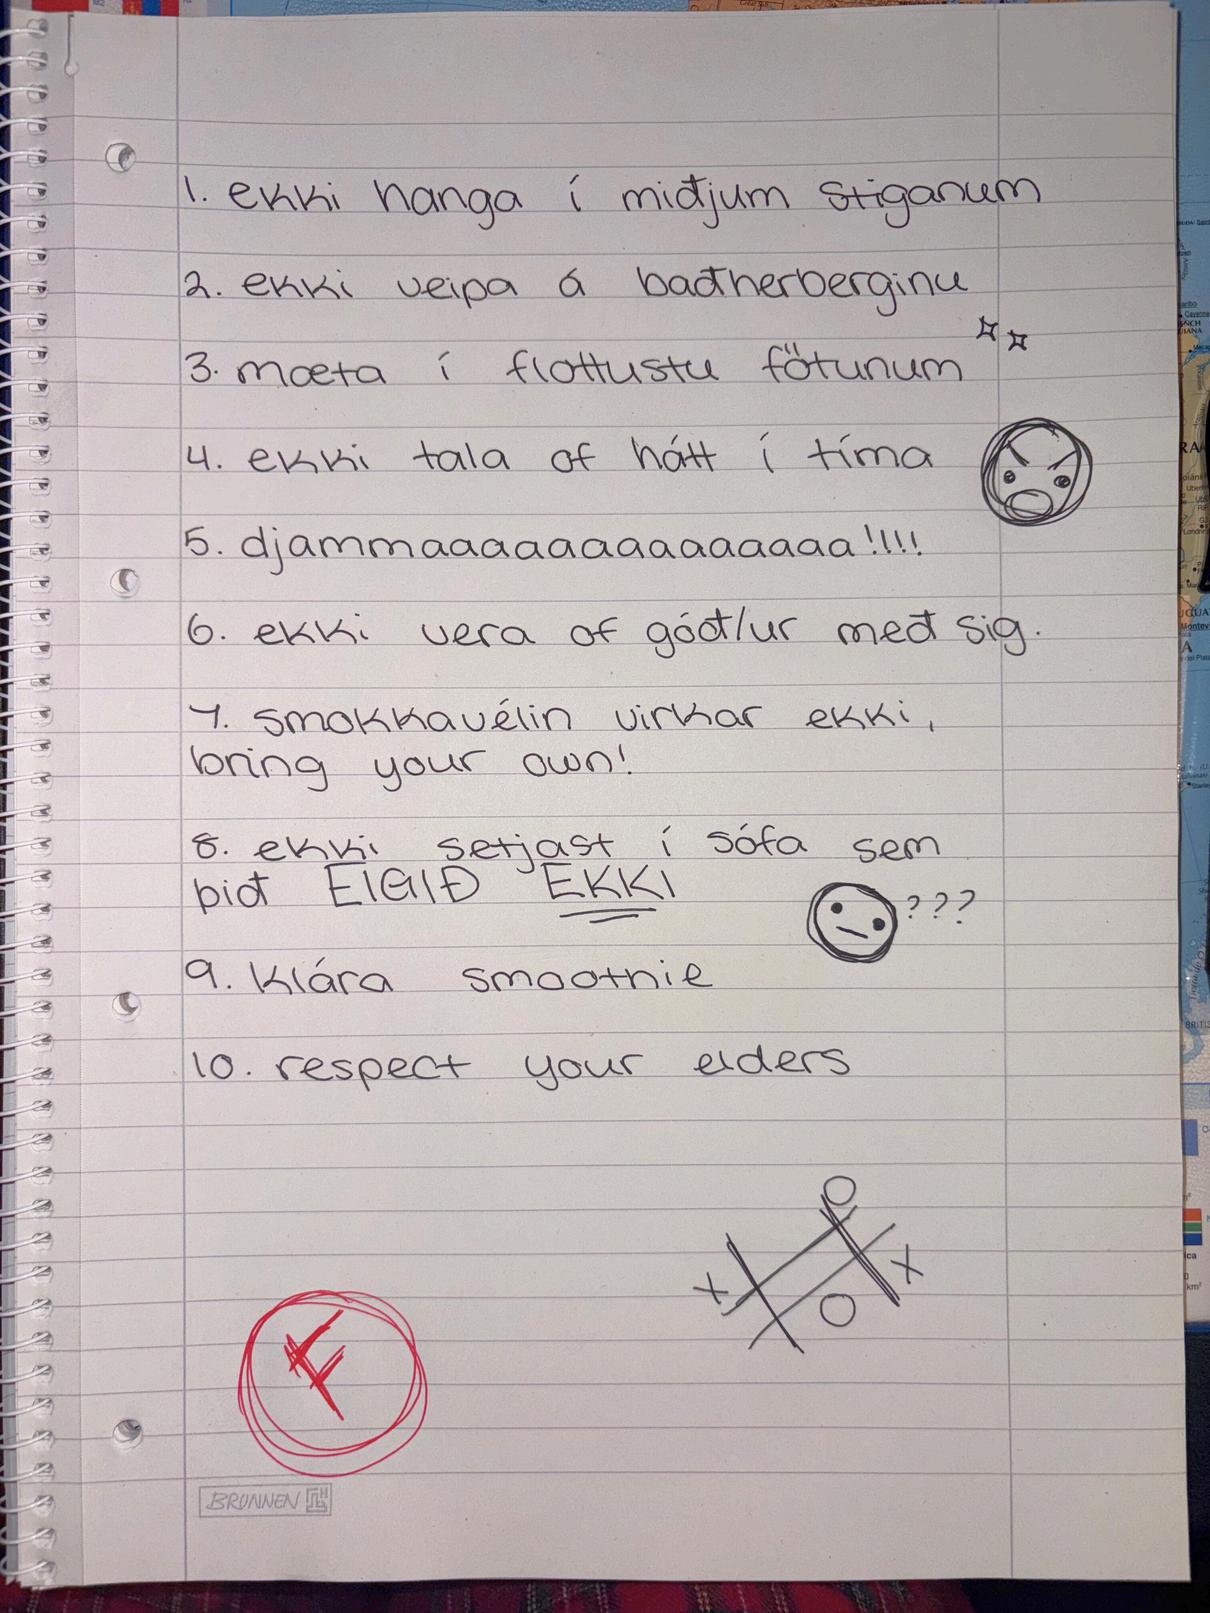 1. ekki hanga í miðjum stiganum
2. ekki veipa á baðherberginu
3. mæta í flottustu fötunum
4. ekki tala of hátt í tíma
5. djammaaaaaaaaaaaaaaa!!!!!
6. ekki vera of góð/ur með sig.
7. smokkavélin virkar ekki,
bring your own!
8. ekki setjast í sófa sem
þið EIGIÐ EKKI
???
9. klára smoothie
10. respect your elders
O
X X
O
F
BRUNNEN